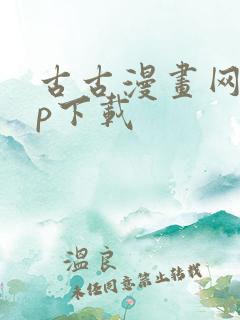 古古漫畫网
p下载
溫良
未经同意禁止转载